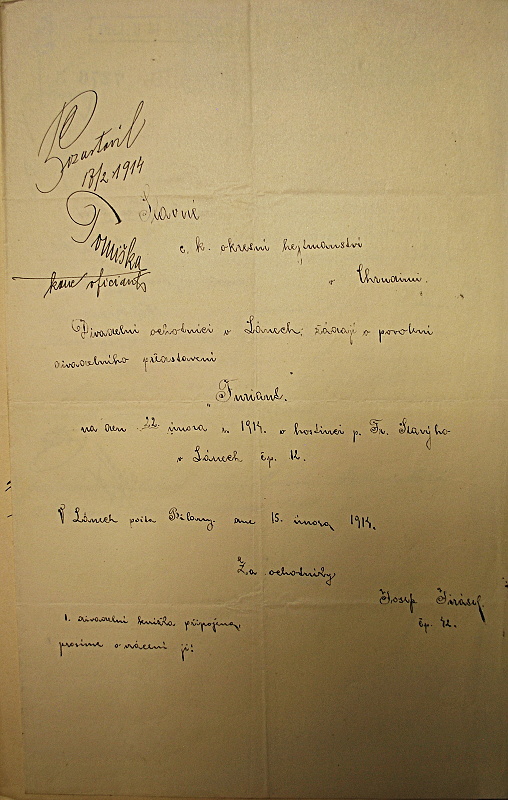 Pozastavil
17/2 1914
Tomiška
kanc oficiant
Slavné
c. k. okresní hejtmanství
v Chrudimi.
Divadelní ochotníci v Lánech, žádají o povolení
divadelního představení
"Furiant."
na den 22 února r. 1914. v hostinci p. Fr. Slavýho
v Lánech čp. 12.
V Lánech pošta Bilany. dne 15. února 1914.
Za ochotníky
Josef Jirásek
čp. 42.
1. divadelní knížka připojena,
prosíme o vrácení jí!